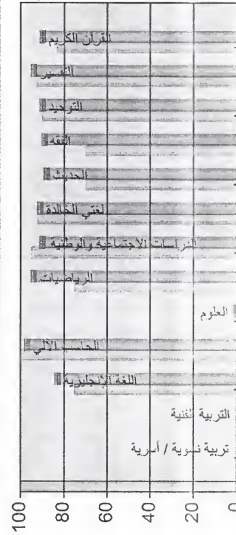 القرآن الكريم
التفسير
التوحيد
الفقه
الحديث
لغتي الخالدة
الدراسات الاجتماعية والوطنية
الرياضيات
العلوم
الحاسب الآلي
اللغة الإنجليزية
التربية الفنية
تربية نسوية / أسرية
100 80 60 40 20 0